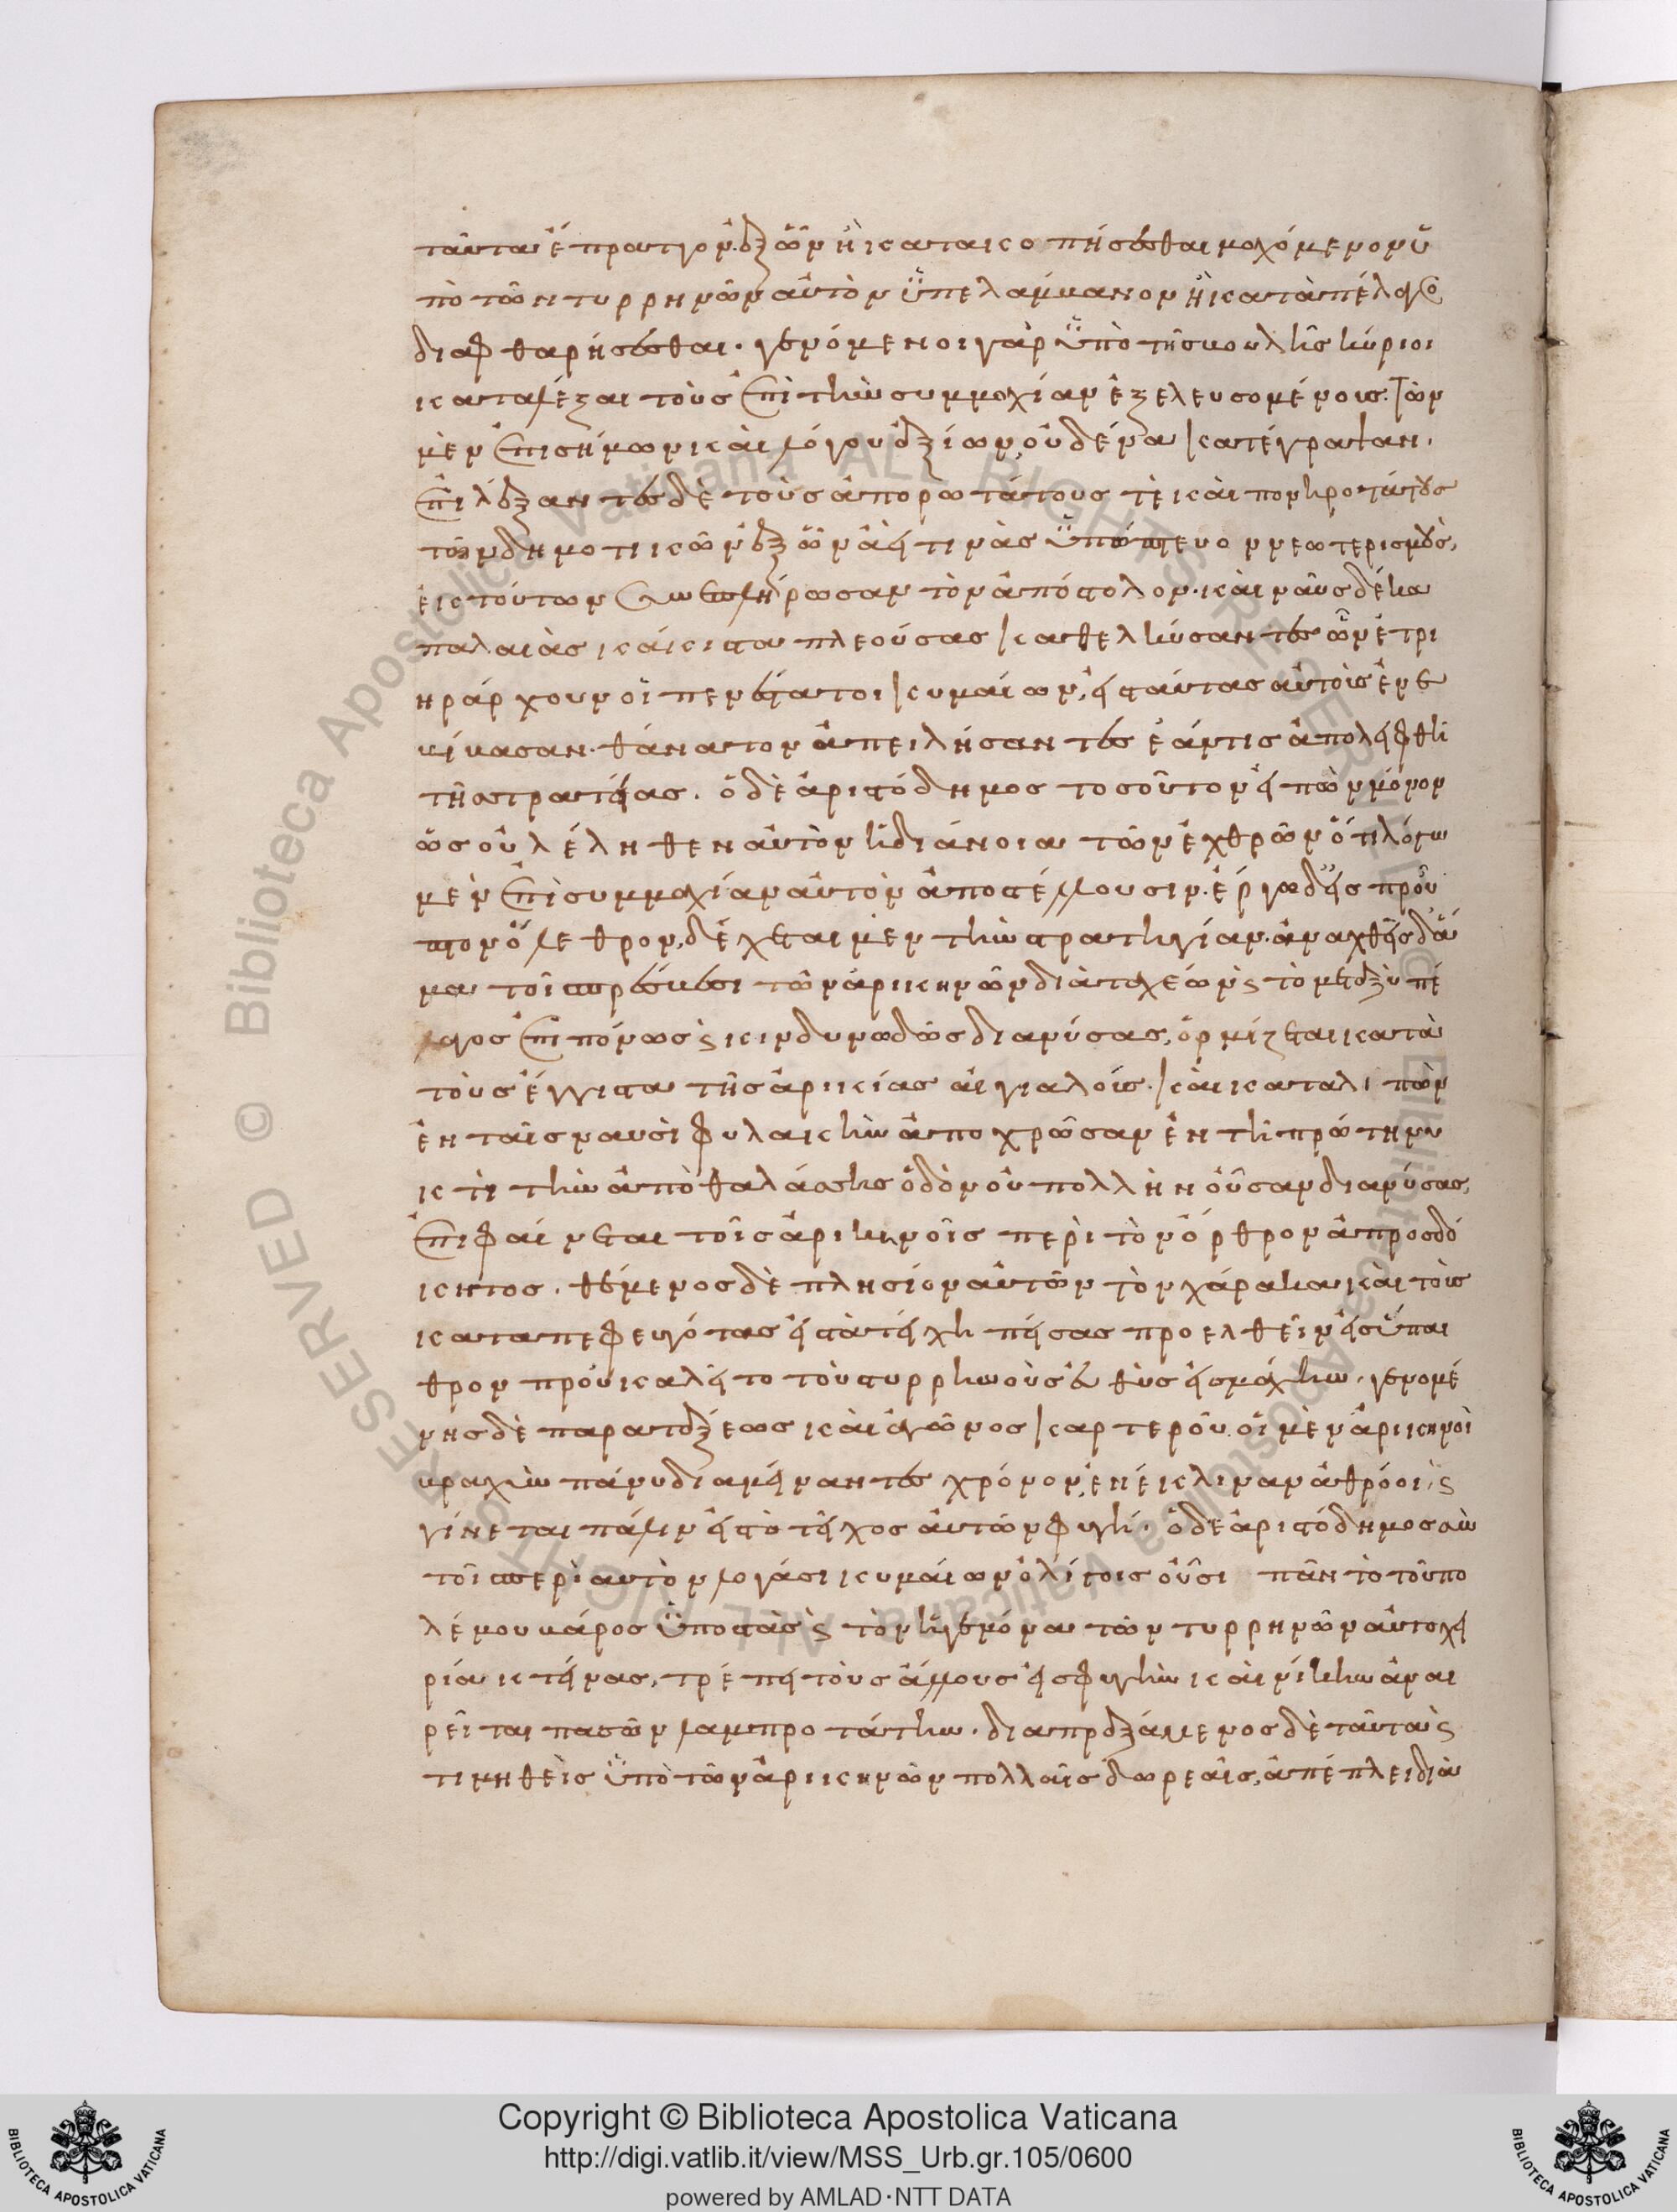 ταῦτα ἔπραττον. ἐξ ὧν ἢ κατακοπήσεσθαι μαχόμενον ὑ
πὸ τῶν τυρρηνῶν αὐτὸν ὑπελάμβανον ἢ κατὰ πέλαγος
διαφθαρήσεσθαι. γενόμενοι γὰρ ὑπὸ τῆς βουλῆς κύριοι
καταλέξαι τοὺς ἐπὶ τὴν συμμαχίαν ἐξελευσομένους. τῶν
μὲν ἐπισήμων καὶ λόγου ἀξίων, οὐδένα κατέγραψαν.
ἐπιλέξαντες δὲ τοὺς ἀπορωτάτους τὲ καὶ πονηροτάτους
τῶν δημοτικῶν ἐξ ὧν ἀεί τινας ὑπώπτευον νεωτερισμοὺς,
ἐκ τούτων συνεπλήρωσαν τὸν ἀπόστολον. καὶ ναῦς δέκα
παλαιὰς κάκιστα πλεούσας καθελκύσαντες ὧν ἐτρι
ηράρχουν οἱ πενέστατοι κυμαίων, εἰς ταύτας αὐτοὺς ἐνε
βίβασαν. θάνατον ἀπειλήσαντες ἐάν τις ἀπολειφθῆ
τῆς στρατείας. ὁ δὲ ἀριστόδημος τοσοῦτον εἰπὼν μόνον
ὡς οὐ λέληθεν αὐτὸν ἡ διάνοια τῶν ἐχθρῶν ὅτι λόγω
μὲν ἐπὶ συμμαχίαν αὐτὸν ἀποστέλλουσιν. ἔργω δ' εἰς προῦ
πτον ὄλεθρον, δέχεται μὲν τὴν στρατηγίαν. ἀναχθεὶς δ' ἅ
μα τοῖς πρέσβεσι τῶν ἀρικηνῶν διὰ ταχέων καὶ τὸ μεταξὺ πέ
λαγος ἐπιπόνως καὶ κινδυνωδῶς διανύσας, ὁρμίζεται κατὰ
τοὺς ἔγγιστα τῆς ἀρικίας αἰγιαλούς. καὶ καταλιπὼν
ἐν ταῖς ναυσὶ φυλακὴν ἀποχρῶσαν ἐν τῆ πρώτη νυ
κτὶ τὴν ἀπὸ θαλάσσης ὁδὸν οὐ πολλὴν οὖσαν διανύσας,
ἐπιφαίνεται τοῖς ἀρικηνοῖς περὶ τὸν ὄρθρον ἀπροσδό
κητος. θέμενος δὲ πλησίον αὐτῶν τὸν χάρακα καὶ τοὺς
καταπεφευγότας εἰς τὰ τείχη πείσας προελθεῖν εἰς ὕπαι
θρον προὐκαλεῖτο τοὺς τυρρηνοὺς εὐθὺς εἰς μάχην. γενομέ
νης δὲ παρατάξεως καὶ ἀγῶνος καρτεροῦ. οἱ μὲν ἀρικηνοὶ
βραχὺν πάνυ διαμείναντες χρόνον, ἐνέκλιναν ἀθρόοι, καὶ
γίνεται πάλιν εἰς τὸ τεῖχος αὐτῶν φυγή. ὁ δὲ ἀριστόδημος σὺν
τοῖς περὶ αυτὸν λογάσι κυμαίων ὀλίγοις οὖσι πᾶν τὸ τοῦ πο
λέμου βάρος ὑποστὰς καὶ τὸν ἡγεμόνα τῶν τυρρηνῶν αὐτοχει
ρία κτείνας, τρέπει τοὺς ἄλλους εἰς φυγὴν καὶ νίκην ἀναι
ρεῖται πασῶν λαμπροτάτην. διαπραξάμενος δὲ ταῦτα καὶ
τιμηθεὶς ὑπὸ τῶν ἀρικηνῶν πολλαῖς δωρεαῖς, ἀπέπλει διὰ
Copyright © Biblioteca Apostolica Vaticana
http://digi.vatlib.it/view/MSS_Urb.gr.105/0600
powered by AMLAD·NTT DATA